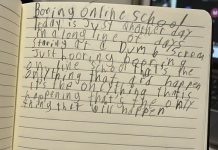 Boring online school
today is Just another day
in a long line of days
staring at a Dumb screen
Just booring booring
on line school that's the
only thing that did happen
it's the only thing thats
happening that's the only
thing that will happen